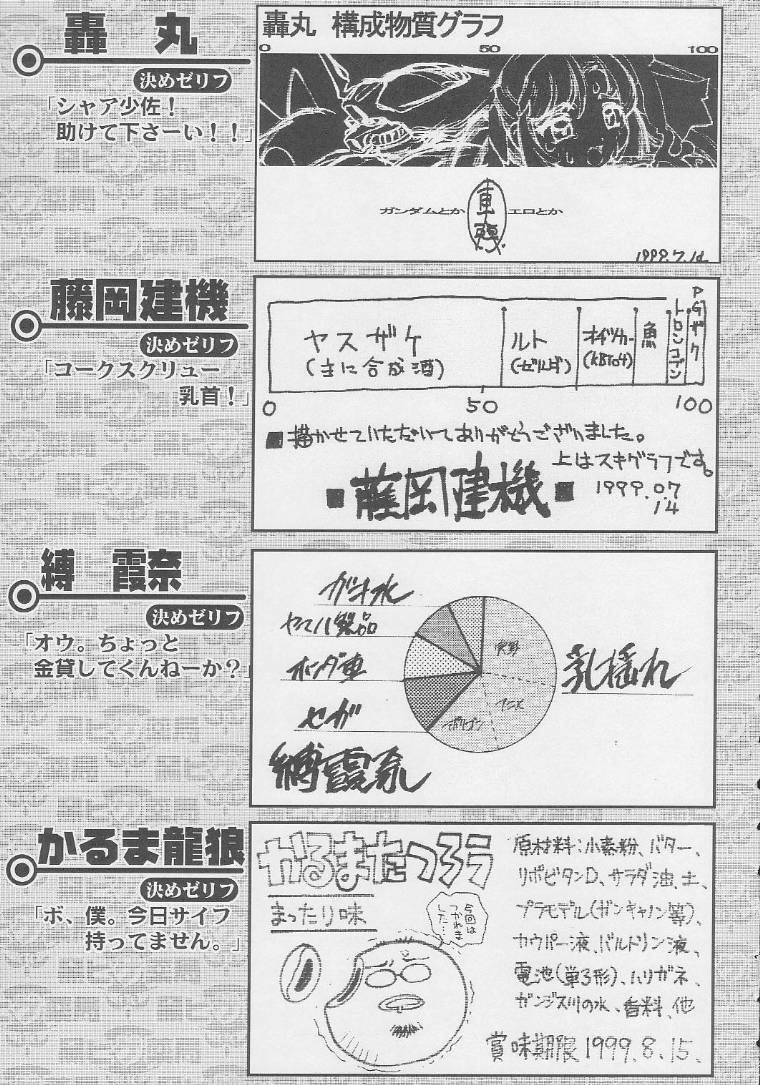 轟丸
決めゼリフ
「シャア少佐！
助けて下さーい！！」
轟丸 構成物質グラフ
0 50 100
ガンダムとか
エロとか
1999.7.14
藤岡建機
決めゼリフ
「コークスクリュー
乳首！」
ヤスザケ
(主に合成酒)
ルト
(ゼルダ)
魚
トロンコゲン
PGザク
0 50 100
■描かせていただいてありがとうございました。
上はスキグラフです。
■藤岡建機■
1999.07
14
縛 霞奈
決めゼリフ
「オウ。ちょっと
金貸してくんねーか？」
ガラナ水
ヤマハ製品
ホンダ車
セガ
実写
アニメ
ポリゴン
乳揺れ
縛霞奈
かるま龍狼
決めゼリフ
「ボ、僕。今日サイフ
持ってません。」
かるまたつろう
まったり味
今回は
つかれま
した…
原材料：小麦粉、バター、
リポビタンD、サラダ油、土、
プラモデル(ガンキャノン等)、
カウパー液、バルトリン液、
電池(単3形)、ハリガネ、
ガンジス川の水、香料、他
賞味期限1999.8.15.